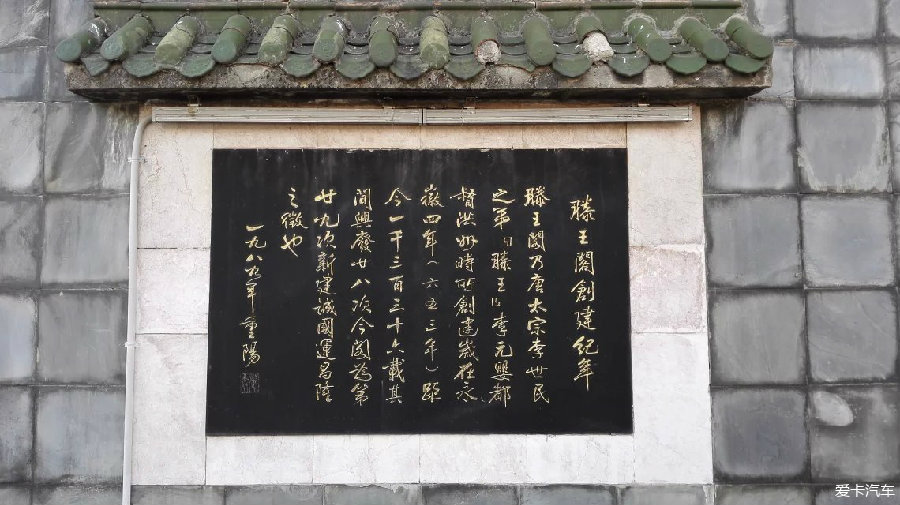 滕王閣創建紀年
滕王閣乃唐太宗李世民
之弟滕王李元嬰都
督洪州時所創建歲在永
徽四年(六五三年)距
今一千三百三十六載其
間興廢廿八次今閣為第
廿九次新建誠國運昌隆
之徵也
一九八九年重陽
爱卡汽车